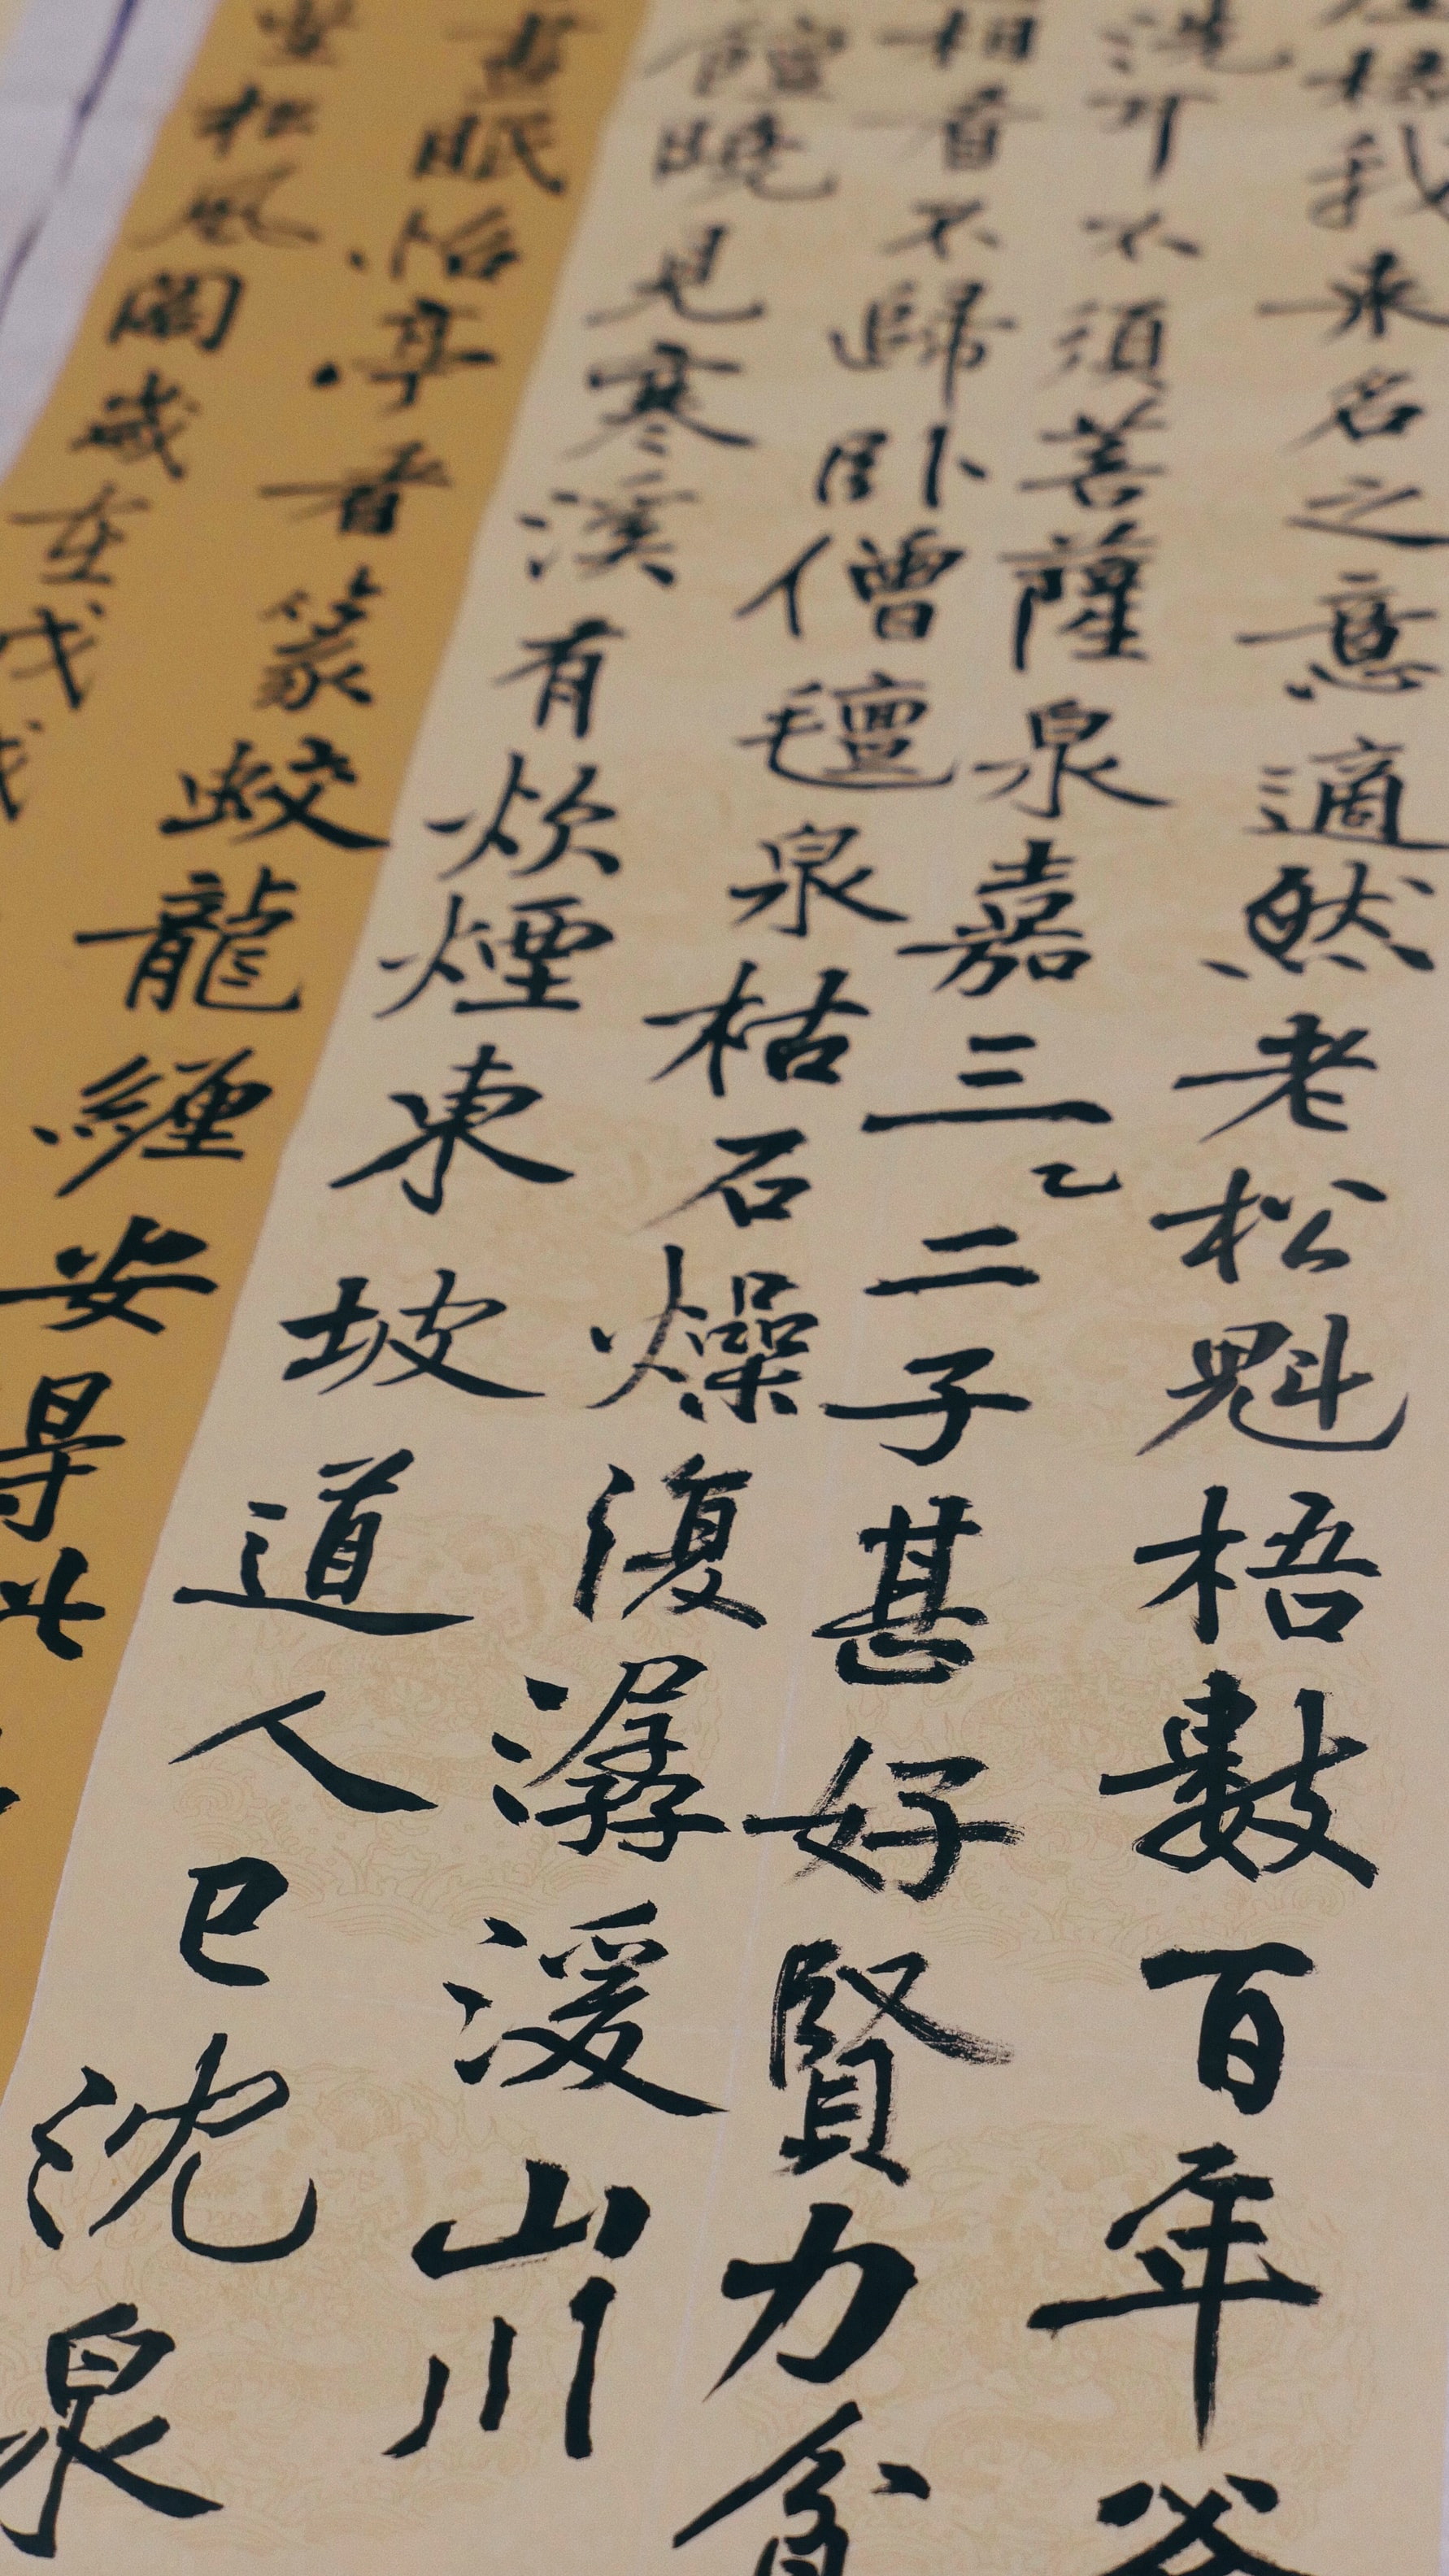 我來名之意適然老松魁梧數百年
洗耳不須菩薩泉嘉三二子甚好賢力貧
相看不歸卧僧氈泉枯石燥復潺湲山川
饘曉見寒溪有炊煙東坡道人已沈泉
晝眠怡亭看篆蛟龍纏安得此
松風閣歲在戊戌